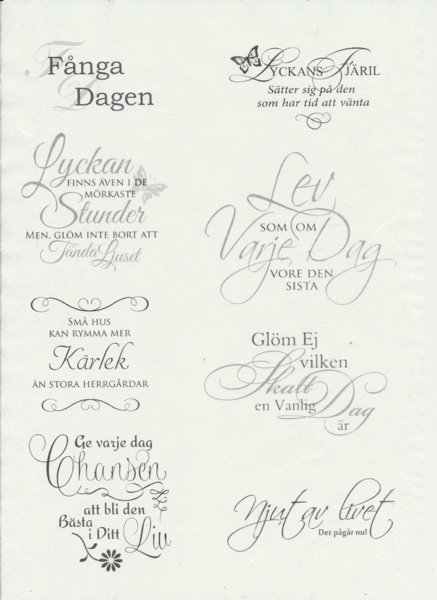 Fånga
Dagen
Lyckans Fjäril
Sätter sig på den
som har tid att vänta
Lyckan
finns även i de
mörkaste
Stunder
Men, glöm inte bort att
Tända Ljuset
Lev
som om
Varje Dag
vore den
sista
Små hus
kan rymma mer
Kärlek
än stora herrgårdar
Glöm Ej
vilken
Skatt
en Vanlig
Dag
är
Ge varje dag
Chansen
att bli den
Bästa
i Ditt Liv
Njut av livet
Det pågår nu!